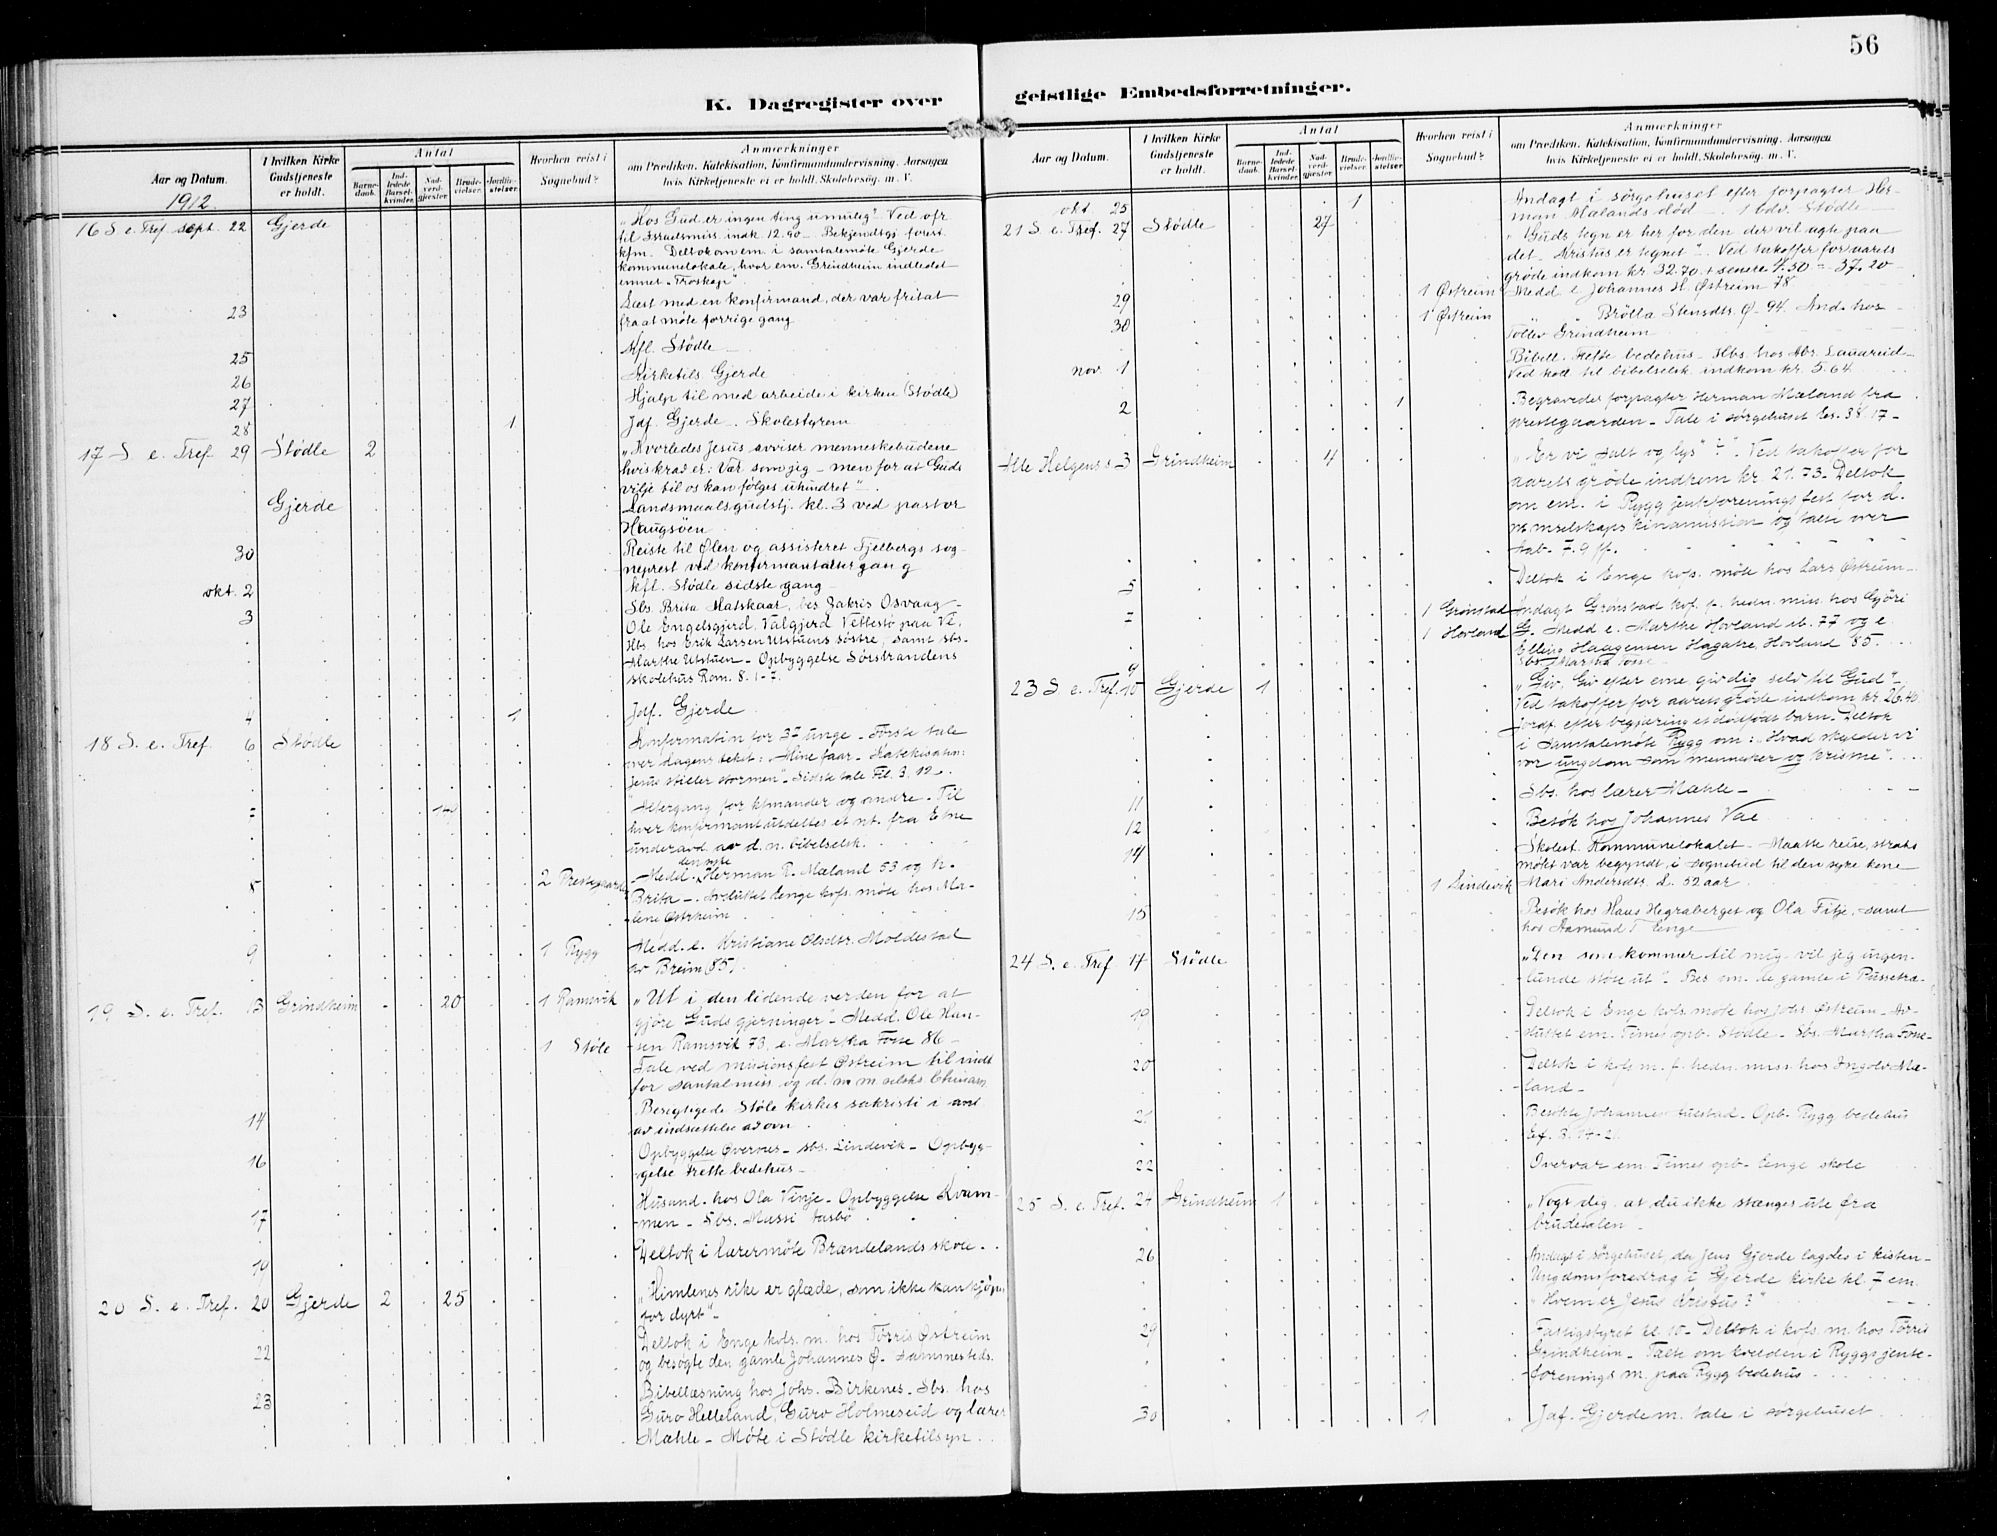 56
K. Dagregister over geistlige Embedsforretninger.
Aar og Datum.
I hvilken Kirke Gudstjeneste er holdt.
Antal
Barnedaab.
Indledede Barselkvinder.
Nadverdgjester.
Brudevielser.
Jordfæstelser.
Hvorhen reist i Sognebud?
Anmærkninger
om Prædiken, Katekisation, Konfirmandundervisning, Aarsagen
hvis Kirketjeneste ei er holdt, Skolebesøg. m. V.
1912
16 S. e. Tref. sept. 22 Gjerde „Hos Gud er ingen ting umulig" Ved ofr
til Israelsmiss. indk. 12.90 – Bekjendtgj. forest.
kfm. Deltok om em. i samtalemöte Gjerde
kommunelokale, hvor em. Grindheim indledet
emnet „Troskap"
23 Læst med en konfirmand, der var fritat
fra at møte forrige gang
25 Kfl. Stødle
26 Kirketils. Gjerde
27 Hjalp til med arbeide i kirken (Stødle)
28 1 Jdf. Gjerde. Skolestyrem
17 S. e. Tref 29 Stødle 2 „Hvorledes Jesus avviser menneskebudene
hvis krav er: Vær som jeg – men for at Guds
vilje til os kan følges uhindret"
Gjerde Landsmaalsgudstj. kl. 3 ved pastor
Haugsöen
30 Reiste til Ølen og assisteret Fjelbergs sog-
neprest ved konfirmantaltergang
okt. 2 kfl. Stødle sidste gang
3 Sbs. Brita Matskaar, bes Zakris Osvaag
Ole Engelsgjerd, Valgjerd Vettestø paa Ve.
Hb. hos Erik Larsen Utstuens søstre, samt sbs.
Marthe Utstuen – Opbyggelse Sørstrandens
skolehus Rom. 8. 1-7.
4 1 Jdf. Gjerde
18 S. e. Tref. 6 Stødle Konfirmation for 37 unge – Første tale
over dagens tekst: „Mine faar – Katekisation:
Jesus stiller stormen" – Sidste tale Fil. 3. 12 –
Altergang for kfmander og andre – Til
hver konfirmant utdeltes et nt. fra Etne
underavd. av d. n. bibelselsk.
8 2 Prestegaarden Medd. den syke Herman R. Mæland 53 og h.
Brita – Avsluttet Enge kofs. møte hos Ma-
lene Østrheim
9 1 Rygg Medd. e. Kristiane Olsdtr. Moldestad
av Breim (85)
19 S. e. Tref. 13 Grindheim 20 1 Ramsvik „Ut i den lidende verden for at
gjøre Guds gjerninger" – Medd. Ole Han-
1 Støle sen Ramsvik 73, e. Martha Fosse 86 –
Tale ved missionsfest Østreim til indt
for santalmiss og d. m m selsks. Chinam
14 Besigtigede Støle kirkes sakristi i anl.
av indsættelse av ovn
16 Opbyggelse Overnes – sbs. Lindevik – Opbyg-
gelse Frette bedehus –
17 Husand. hos Ola Vinje – Opbyggelse Kvam-
men – Sbs. Massi
19 Deltok i Lærermøte Brændelands skole.
20 S. e. Tref. 20 Gjerde 2 25 „Himlenes rike er glæde, som ikke kan kjøpes
for dyrt" –
22 Deltok i Enge kofs. m. hos Tørris Østreim
og besøgte den gamle Johannes Ø. sammesteds.
23 Bibellæsning hos Johs. Birkenes – Sbs. hos
Guro Helleland, Guro Holmeseid og lærer
Mæhle – Møte i Stødle kirketilsyn
Aar og Datum.
I hvilken Kirke Gudstjeneste er holdt.
Antal
Barnedaab.
Indledede Barselkvinder.
Nadverdgjester.
Brudevielser.
Jordfæstelser.
Hvorhen reist i Sognebud?
Anmærkninger
om Prædiken, Katekisation, Konfirmandundervisning, Aarsagen
hvis Kirketjeneste ei er holdt, Skolebesøg. m. V.
okt. 25 1 Andagt i sørgehuset efter forpagter Her-
man Mælands død – 1 bdv. Stødle
21 S. e. Tref. 27 Stødle 27 „Guds tegn er her for den der vil agte paa
det – Kristus er tegnet" – Ved takoffer for aarets
grøde indkom kr. 32.70 + senere 4.50 = 37.20
29 1 Østreim Medd e Johannes H. Østreim 78
30 1 Østreim Brölla Stensdtr. Ø – 94. And. hos
Tollev Grindheim
nov. 1 Bibell. Tefte bedehus – Hbs. hos Abr. Lauareid –
Ved koll. til bibelselsk. indkom kr. 5.64
2 1 Begravedes forpagter Herman Mæland fra
prestegaarden – Tale i sørgehuset Es. 38. 17 –
Alle Helgens s. 3 Grindheim 4 „Er vi „salt og lys"?" Ved takoffer for
aarets grøde indkom kr. 21.73 – Deltok
om em. i Rygg jenteforenings fest for d.
m mselskaps kinamission og talte over
Aab. 7. 9 ff.
5 Deltok i Enge kofs. møte hos Lars Østreim –
7 1 Grønstad Andagt Grønstad kof. f. hedn. miss. hos Gjøri
1 Hovland G. Medd e. Marthe Hovland 77 og e.
Elling Haagensen Hagatre, Hovland 85.
9 Sbs Martha Fosse
23 S. e. Tref. 10 Gjerde 1 „Giv, giv efter evne, giv dig selv til Gud" –
Ved takoffer for aarets grøde indkom kr. 26.40
Jordf. efter begjæring et dødfødt barn – Deltok
i samtalemøte Rygg om: „Hvad skylder vi
vor ungdom som mennesker og kristne".
11 Sbs. hos lærer Mæhle –
12 Besøk hos Johannes Vae
14 Skolest. Kommunelokalet – Maatte reise, straks
møtet var begyndt, i sognebud til den syke kone
1 Lindevik Mari Andersdtr. L. 52 aar
15 Besøk hos Hans Hegraberget og Ola Fitje, samt
hos Aamund T Enge
24 S. e. Tref 17 Stødle „Den som kommer til mig vil jeg ingen-
lunde støte ut" – Bes. em. de gamle i
19 Deltok i Enge kofs. møte hos Johs Østreim – Av-
sluttet em. Times opb. Stødle – Sbs. Martha Fosse –
20 Deltok i kofs m. f. hedn. miss. hos Ingolv Mæ-
land –
21 Besøkte Johannes – Opb. Rygg bedehus
Ef. 3. 14-21
22 Overvar em. Times opb. Enge skole
25 S. e. Tref. 24 Grindheim 1 „Vogt dig, at du ikke stænges ute fra
brudesalen –
26 Andagt i sørgehuset da Jens Gjerde lagdes i kisten –
Ungdomsforedrag i Gjerde kirke kl. 7 em.
„Hvem er Jesus Kristus?"
29 Fattigstyret kl. 10 – Deltok i kofs. m. hos Tørris
Grindheim – Talte om kvelden i Ryggs jente-
forenings m. paa Rygg bedehus
30 1 Jdf. Gjerde m. tale i sørgehuset